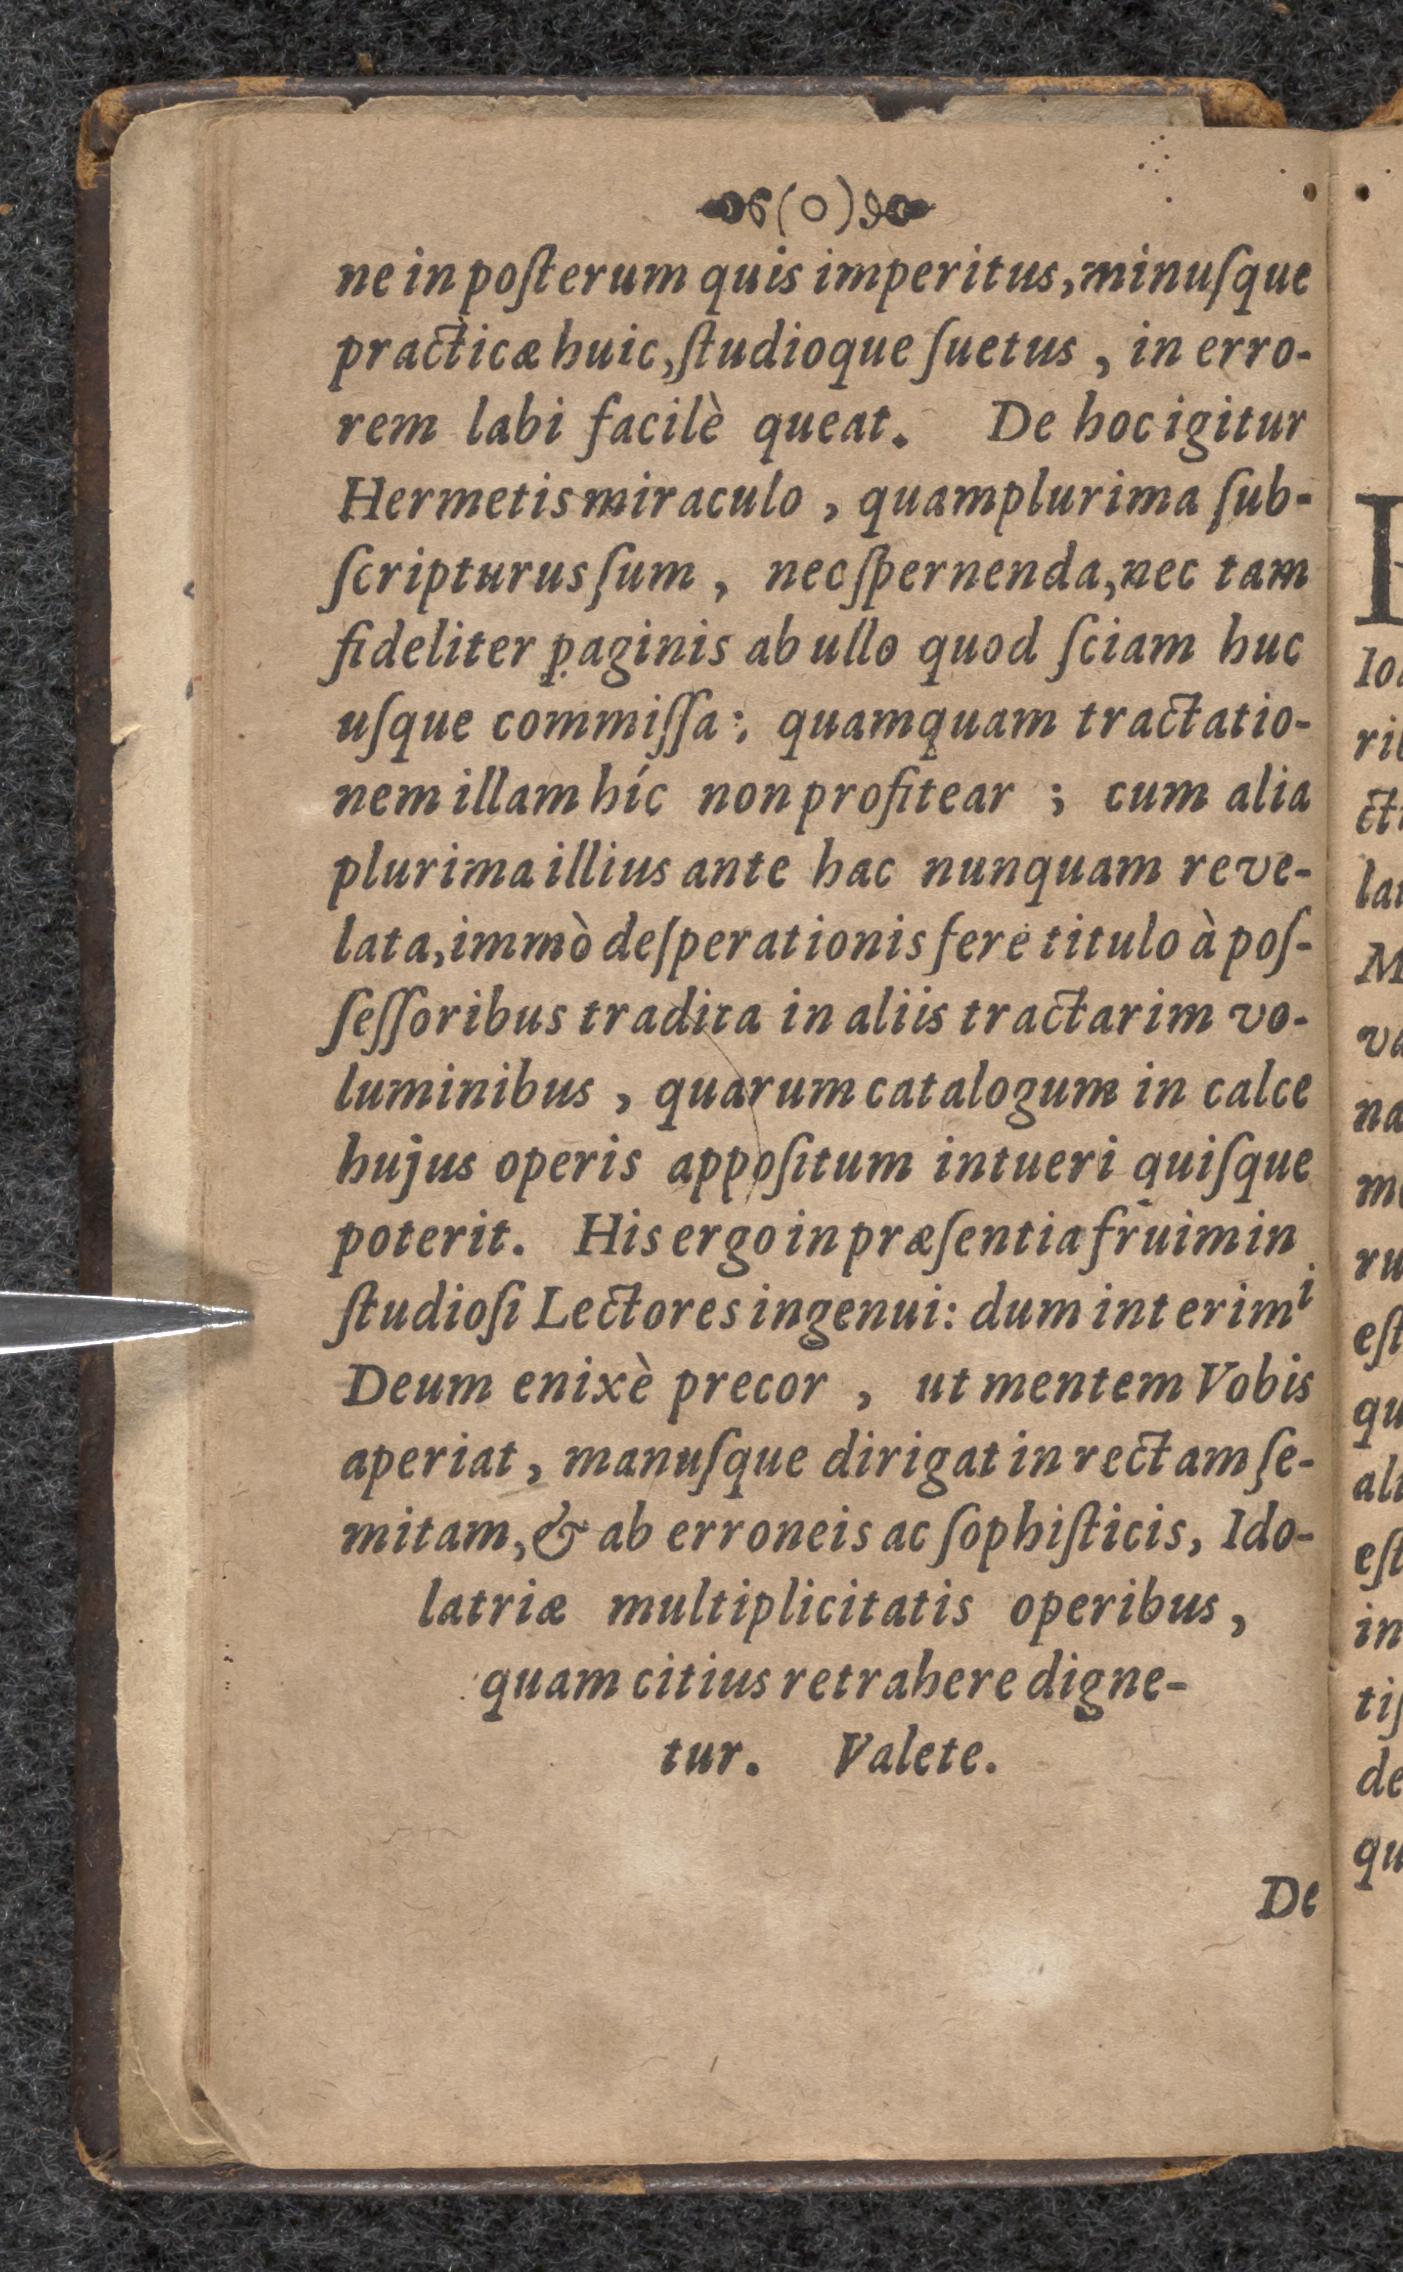 (O)
ne in poſterum quis imperitus, minuſque
practicæ huic, ſtudioque ſuetus, in erro-
rem labi facilè queat. De hoc igitur
Hermetis miraculo, quamplurima ſub-
ſcripturus ſum, nec ſpernenda, nec tam
fideliter paginis ab ullo quod ſciam huc
uſque commiſſa: quamquam tractatio-
nem illam híc non profitear; cum alia
plurima illius ante hac nunquam reve-
lata, immò deſperationis ferè titulo à poſ-
ſeſſoribus tradita in aliis tractarim vo-
luminibus, quarum catalogum in calce
hujus operis appoſitum intueri quiſque
poterit. His ergo in præſentia fruimin
ſtudioſi Lectores ingenui: dum interim i
Deum enixè precor, ut mentem Vobis
aperiat, manuſque dirigat in rectam ſe-
mitam, & ab erroneis ac ſophiſticis, Ido-
latriæ multiplicitatis operibus,
quam citius retrahere digne-
tur. Valete.
De